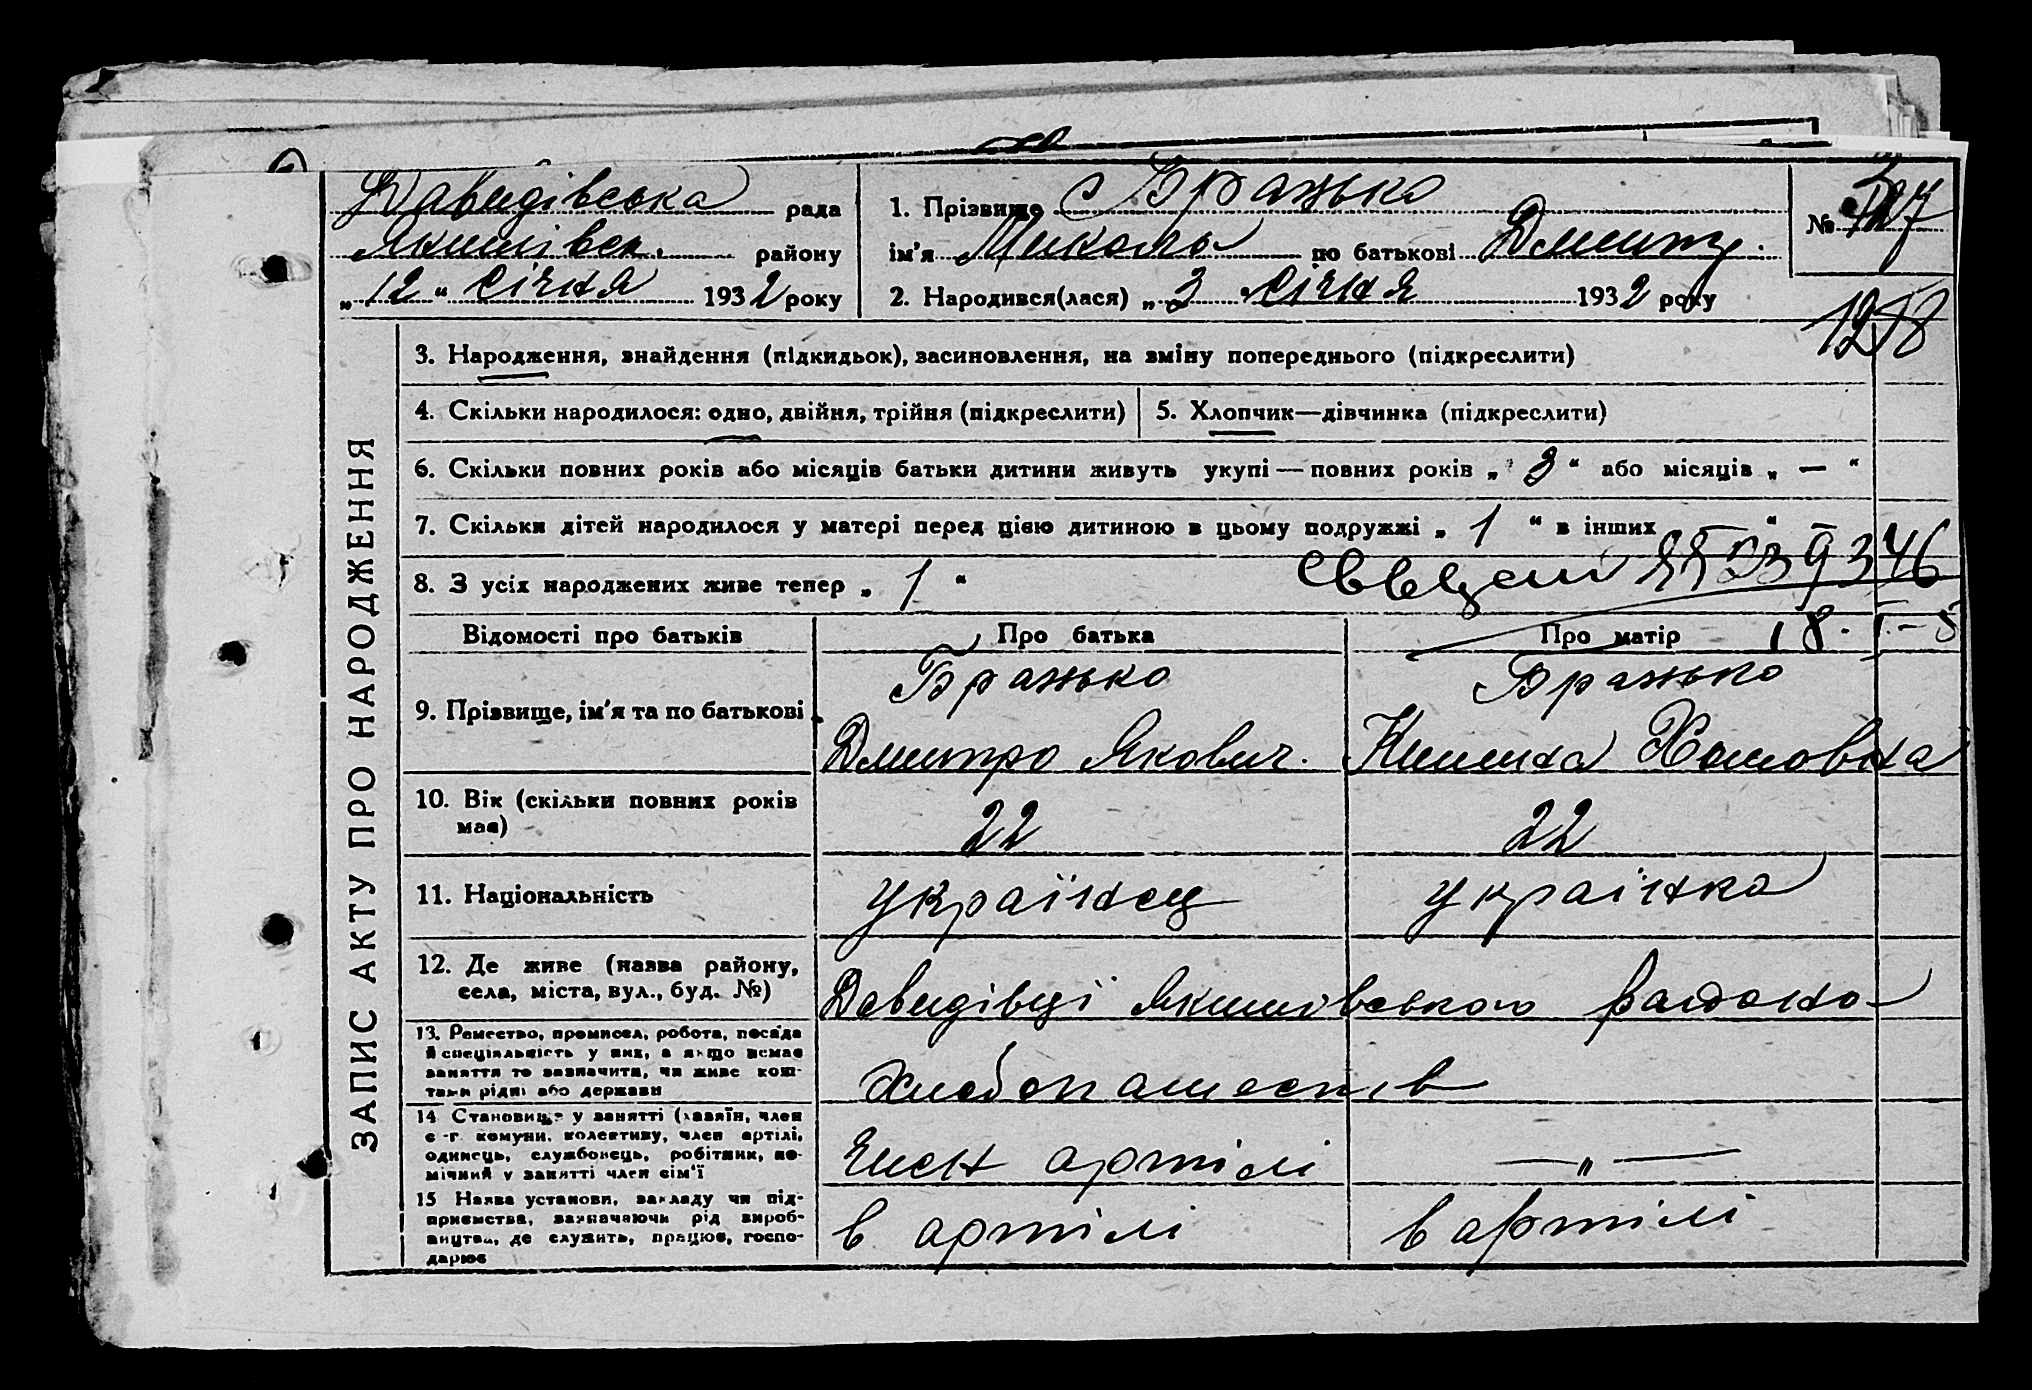 Давидівська рада
Якимівськ. району
„ 12 “ Січня 1932 року
1. Прізвище Бражько
ім'я Микола по батькові Дмитр.
2. Народився(лася) „ 3 “ Січня 1932 року
№
1218
ЗАПИС АКТУ ПРО НАРОДЖЕННЯ
3. Народження, знайдення (підкидьок), засиновлення, на зміну попереднього (підкреслити)
4. Скільки народилося: одно, двійня, трійня (підкреслити)
5. Хлопчик—дівчинка (підкреслити)
6. Скільки повних років або місяців батьки дитини живуть укупі — повних років „ 3 “ або місяців „ — “
7. Скільки дітей народилося у матері перед цією дитиною в цьому подружжі „ 1 “ в інших „
8. З усіх народжених живе тепер „ 1 “
Відомості про батьків
Про батька
Про матір
9. Прізвище, ім'я та по батькові
Бражько
Дмитро Якович.
Бражько
Килина Хомовна
10. Вік (скільки повних років має)
22
22
11. Національність
українец
українка
12. Де живе (назва району,
села, міста, вул., буд. №)
Давидівці Якимівського району
13. Ремество, промисел, робота, посада
й спеціяльність у них, а якщо немає
заняття то зазначити, чи живе кош-
тами рідні або держави
хлебопашество
14 Становище у занятті (хазяїн, член
с.-г. комуни, колективу, член артілі,
одинець, службовець, робітник, по-
мічний у занятті член сім'ї
Член артілі
—„—
15 Назва установи, закладу чи під-
приємства, зазначаючи рід вироб-
ництва, де служить, працює, госпо-
дарює
в артілі
в артілі